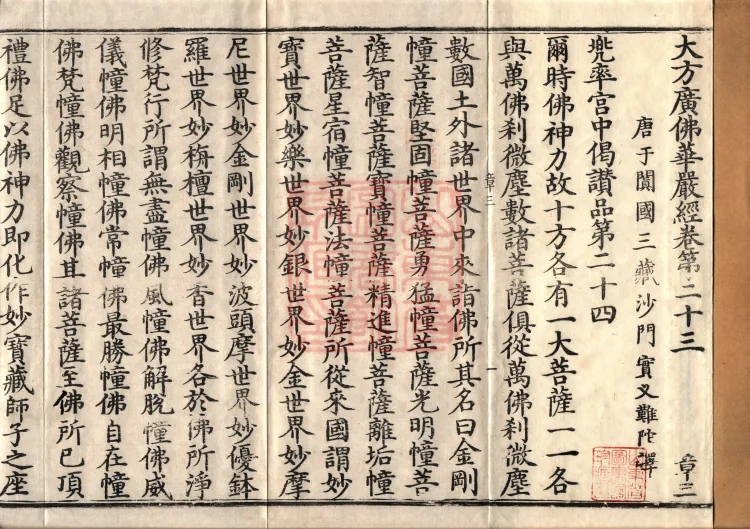 大方廣佛華嚴經卷第二十三 章三
唐于闐國三藏沙門實叉難陀譯
兜率宮中偈讚品第二十四
爾時佛神力故十方各有一大菩薩一一各
與萬佛剎微塵數諸菩薩俱從萬佛剎微塵
章三 一
數國土外諸世界中來詣佛所其名曰金剛
幢菩薩堅固幢菩薩勇猛幢菩薩光明幢菩
薩智幢菩薩寶幢菩薩精進幢菩薩離垢幢
菩薩星宿幢菩薩法幢菩薩所從來國謂妙
寶世界妙樂世界妙銀世界妙金世界妙摩
尼世界妙金剛世界妙波頭摩世界妙優鉢
羅世界妙栴檀世界妙香世界各於佛所淨
修梵行所謂無盡幢佛風幢佛解脫幢佛威
儀幢佛明相幢佛常幢佛最勝幢佛自在幢
佛梵幢佛觀察幢佛其諸菩薩至佛所已頂
禮佛足以佛神力即化作妙寶藏師子之座